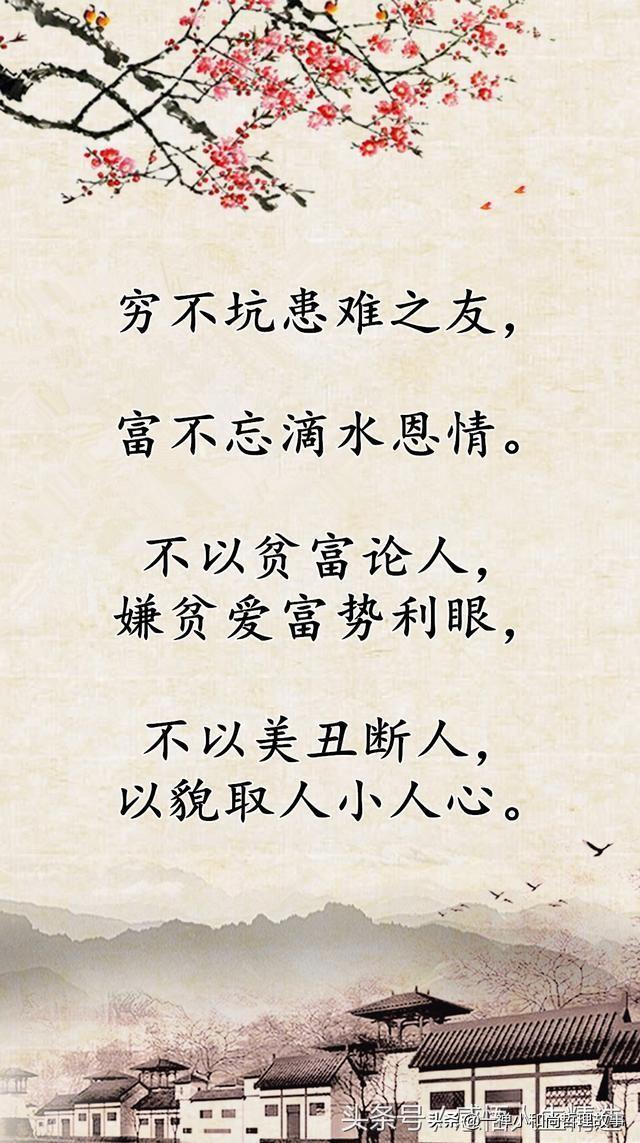 穷不坑患难之友，
富不忘滴水恩情。
不以贫富论人，
嫌贫爱富势利眼，
不以美丑断人，
以貌取人小人心。
头条 @禅小和尚哲理故事